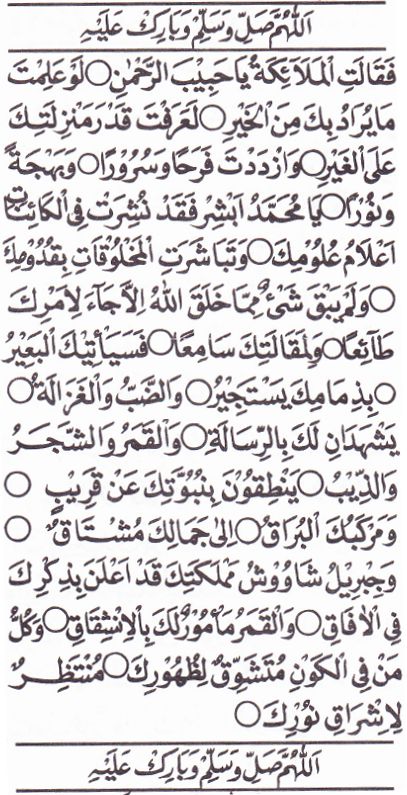 اَللّٰهُمَّ صَلِّ وَسَلِّمْ وَبَارِكْ عَلَيْهِ
فَقَالَتِ الْمَلَائِكَةُ يَا حَبِيْبَ الرَّحْمٰنِ ○ لَوْ عَلِمْتَ
مَا يُرَادُ بِكَ مِنَ الْخَيْرِ ○ لَعَرَفْتَ قَدْرَ مَنْزِلَتِكَ
عَلَى الْغَيْرِ ○ وَازْدَدْتَ فَرَحًا وَسُرُوْرًا ○ وَبَهْجَةً
وَنُوْرًا ○ يَا مُحَمَّدُ اَبْشِرْ فَقَدْ نُشِرَتْ فِى الْكَائِنَاتِ
اَعْلَامُ عُلُوْمِكَ ○ وَتَبَاشَرَتِ الْمَخْلُوْقَاتِ بِقُدُوْمِكَ
○ وَلَمْ يَبْقَ شَىْءٌ مِمَّا خَلَقَ اللهُ اِلَّا جَاءَ لِاَمْرِكَ
طَآئِعًا ○ وَلِمَقَالَتِكَ سَامِعًا ○ فَسَيَأْتِيْكَ الْبَعِيْرُ
○ بِذِمَامِكَ يَسْتَجِيْرُ ○ وَالضَّبُّ وَالْغَزَالَةُ ○
يَشْهَدَانِ لَكَ بِالرِّسَالَةِ ○ وَالْقَمَرُ وَالشَّجَرُ
وَالذِّيْبُ ○ يَنْطِقُوْنَ بِنُبُوَّتِكَ عَنْ قَرِيْبٍ ○
وَمَرْكَبُكَ الْبُرَاقُ ○ اِلٰى جَمَالِكَ مُشْتَاقٌ ○
وَجِبْرِيْلُ شَاوُوْشُ مَمْلَكَتِكَ قَدْ اَعْلَنَ بِذِكْرِكَ
فِى الْاٰفَاقِ ○ وَالْقَمَرُ مَأْمُوْرٌ لَكَ بِالْاِنْشِقَاقِ ○ وَكُلُّ
مَنْ فِى الْكَوْنِ مُتَشَوِّقٌ لِظُهُوْرِكَ ○ مُنْتَظِرٌ
لِاِشْرَاقِ نُوْرِكَ ○
اَللّٰهُمَّ صَلِّ وَسَلِّمْ وَبَارِكْ عَلَيْهِ